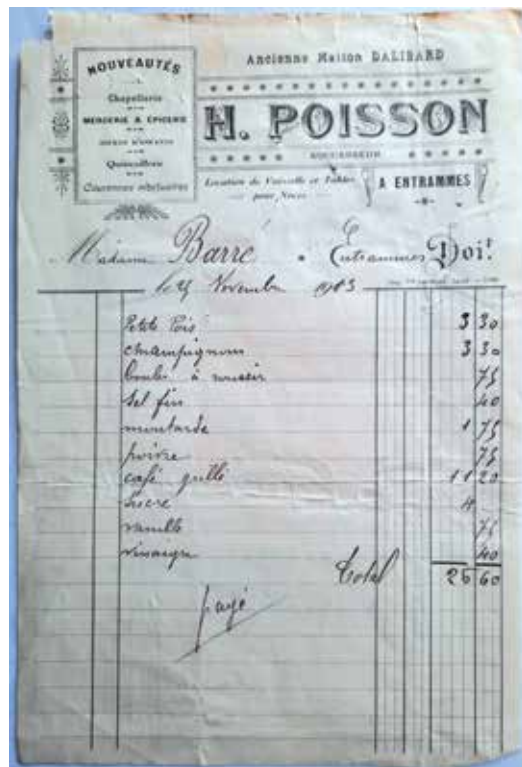 NOUVEAUTÉS
Chapellerie
MERCERIE & ÉPICERIE
Quincaillerie
Couronnes mortuaires
Ancienne Maison DALIBARD
H. POISSON
SUCCESSEUR
Location de Vaisselle et Tables
pour Noces
A ENTRAMMES
Madame Barré Entrammes Doit
le Novembre 1903
Petits Pois 3 30
champignons 3 30
boule à 75
Sel fin 40
moutarde 1 75
poivre 75
café grillé 11 20
sucre 4
vanille 75
vinaigre 40
Total 26 60
payé